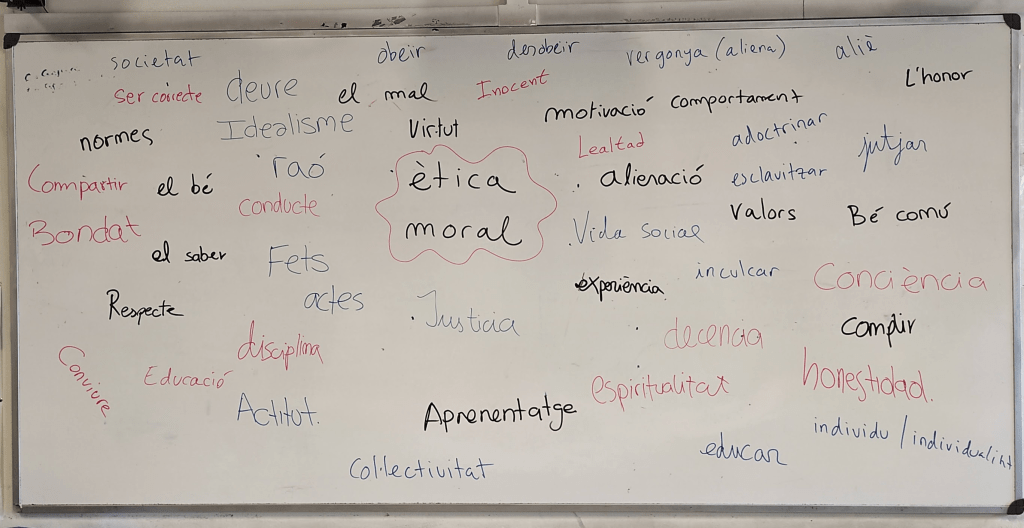 societat
obeir
desobeir
vergonya (aliena)
aliè
L'honor
ser correcte
deure
el mal
Inocent
motivació
comportament
normes
Idealisme
Virtut
Lealtad
adoctrinar
jutjar
Compartir
el bé
raó
ètica
alienació
esclavitzar
conducte
valors
Bé comú
Bondat
moral
Vida social
el saber
Fets
experiència
inculcar
Conciència
Respecte
actes
Justicia
decencia
complir
disciplina
Conviure
Educació
espiritualitat
honestidad.
Actitut.
Aprenentatge
individu / individualist
educar
Col·lectivitat